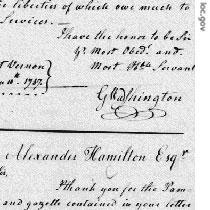 liberties of which owe much to
Services. —
I have the honor to be Sir
Yr Most Obedt. and
Most Hble Servant
t Vernon
10th. 1787.
GWashington
Alexander Hamilton Esqr
Thank you for the Pam
and gazette contained in your letter
loc.gov